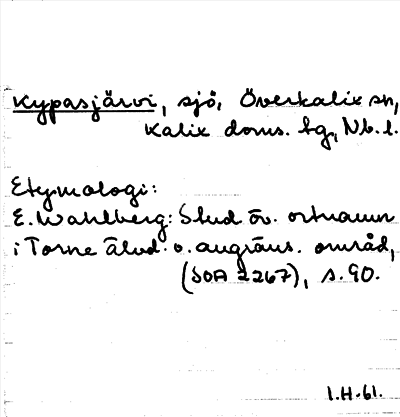 Kypasjärvi, sjö, Överkalix sn,
Kalix doms. tg, Nb. l.
Etymologi:
E. Wahlberg: Stud öv. ortnamn
i Torne älvd. o. angräns. områd,
(SOA 2267), s. 90.
I.H.61.